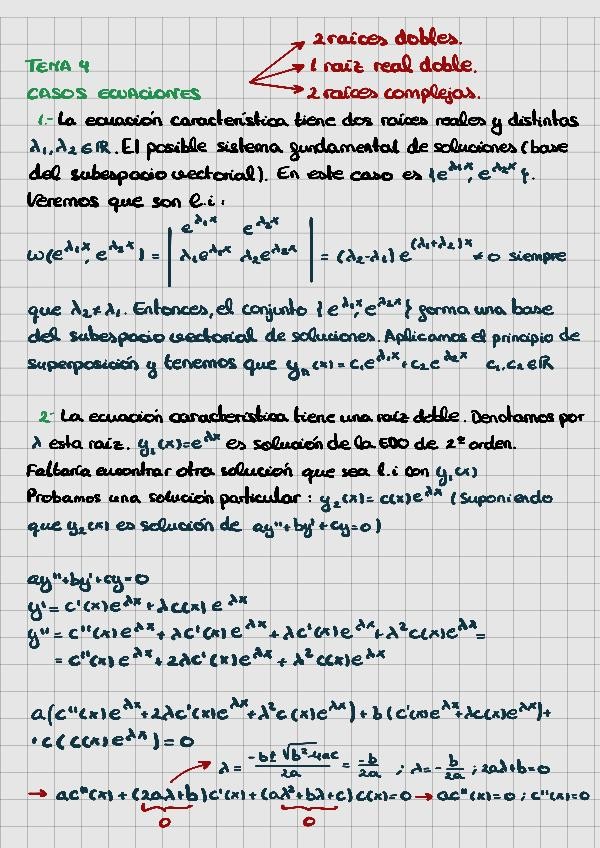 2 raíces dobles.
TEMA 4
1 raíz real doble.
CASOS ECUACIONES
2 raíces complejas.
1.- La ecuación característica tiene dos raíces reales y distintas
λ₁, λ₂ ∈ ℝ. El posible sistema fundamental de soluciones (base
del subespacio vectorial). En este caso es {e^λ₁x, e^λ₂x}.
Veremos que son l.i:
w(e^λ₁x, e^λ₂x) = | e^λ₁x e^λ₂x ; λ₁e^λ₁x λ₂e^λ₂x | = (λ₂-λ₁) e^(λ₁+λ₂)x ≠ 0 siempre
que λ₂ ≠ λ₁. Entonces, el conjunto {e^λ₁x, e^λ₂x} forma una base
del subespacio vectorial de soluciones. Aplicamos el principio de
superposición y tenemos que yₕ(x) = c₁e^λ₁x + c₂e^λ₂x c₁, c₂ ∈ ℝ
2- La ecuación característica tiene una raíz doble. Denotamos por
λ esta raíz. y₁(x)=e^λx es solución de la EDO de 2º orden.
Faltaría encontrar otra solución que sea l.i con y₁(x)
Probamos una solución particular: y₂(x) = c(x)e^λx (Suponiendo
que y₂(x) es solución de ay''+by'+cy=0)
ay''+by'+cy=0
y' = c'(x)e^λx + λc(x)e^λx
y'' = c''(x)e^λx + λc'(x)e^λx + λc'(x)e^λx + λ²c(x)e^λx =
= c''(x)e^λx + 2λc'(x)e^λx + λ²c(x)e^λx
a(c''(x)e^λx + 2λc'(x)e^λx + λ²c(x)e^λx) + b(c'(x)e^λx + λc(x)e^λx) +
+ c(c(x)e^λx) = 0
λ = (-b ± √(b²-4ac))/2a = -b/2a ; λ = -b/2a ; 2aλ+b=0
→ ac''(x) + (2aλ+b)c'(x) + (aλ²+bλ+c)c(x)=0 → ac''(x)=0 ; c''(x)=0
0 0